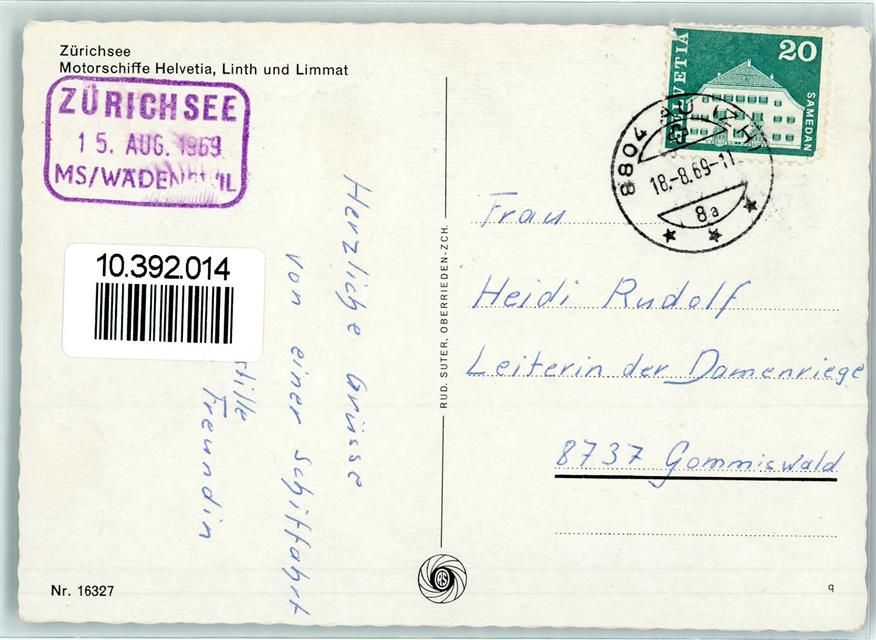 Zürichsee
Motorschiffe Helvetia, Linth und Limmat
ZÜRICHSEE
15. AUG. 1969
MS/WÄDENSWIL
10.392.014
Herzliche Grüsse
von einer Schiffahrt
stille
Freundin
Nr. 16327
RUD. SUTER, OBERRIEDEN-ZCH.
HELVETIA
20
SAMEDAN
8804 AU (ZH)
18.-8.69-11
8a
Frau
Heidi Rudolf
Leiterin der Damenriege
8737 Gommiswald
q